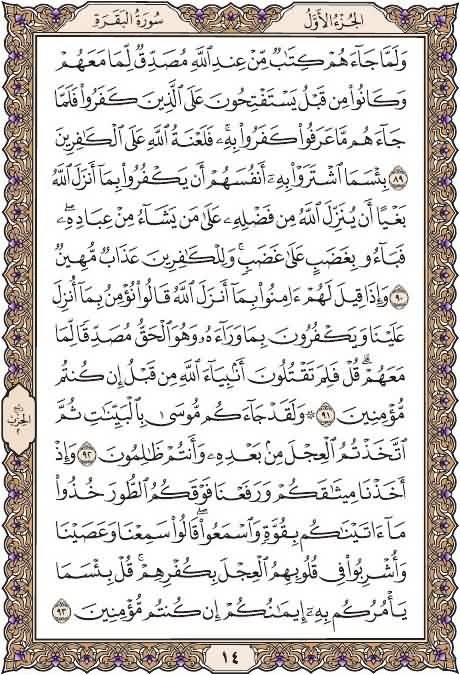 الجزء الأول
سورة البقرة
وَلَمَّا جَآءَهُمْ كِتَٰبٌ مِّنْ عِندِ ٱللَّهِ مُصَدِّقٌ لِّمَا مَعَهُمْ
وَكَانُوا۟ مِن قَبْلُ يَسْتَفْتِحُونَ عَلَى ٱلَّذِينَ كَفَرُوا۟ فَلَمَّا
جَآءَهُم مَّا عَرَفُوا۟ كَفَرُوا۟ بِهِۦ ۚ فَلَعْنَةُ ٱللَّهِ عَلَى ٱلْكَٰفِرِينَ
٨٩ بِئْسَمَا ٱشْتَرَوْا۟ بِهِۦٓ أَنفُسَهُمْ أَن يَكْفُرُوا۟ بِمَآ أَنزَلَ ٱللَّهُ
بَغْيًا أَن يُنَزِّلَ ٱللَّهُ مِن فَضْلِهِۦ عَلَىٰ مَن يَشَآءُ مِنْ عِبَادِهِۦ ۖ
فَبَآءُو بِغَضَبٍ عَلَىٰ غَضَبٍ ۚ وَلِلْكَٰفِرِينَ عَذَابٌ مُّهِينٌ
٩٠ وَإِذَا قِيلَ لَهُمْ ءَامِنُوا۟ بِمَآ أَنزَلَ ٱللَّهُ قَالُوا۟ نُؤْمِنُ بِمَآ أُنزِلَ
عَلَيْنَا وَيَكْفُرُونَ بِمَا وَرَآءَهُۥ وَهُوَ ٱلْحَقُّ مُصَدِّقًا لِّمَا
مَعَهُمْ ۗ قُلْ فَلِمَ تَقْتُلُونَ أَنۢبِيَآءَ ٱللَّهِ مِن قَبْلُ إِن كُنتُم
مُّؤْمِنِينَ ٩١ ۞ وَلَقَدْ جَآءَكُم مُّوسَىٰ بِٱلْبَيِّنَٰتِ ثُمَّ
ٱتَّخَذْتُمُ ٱلْعِجْلَ مِنۢ بَعْدِهِۦ وَأَنتُمْ ظَٰلِمُونَ ٩٢ وَإِذْ
أَخَذْنَا مِيثَٰقَكُمْ وَرَفَعْنَا فَوْقَكُمُ ٱلطُّورَ خُذُوا۟
مَآ ءَاتَيْنَٰكُم بِقُوَّةٍ وَٱسْمَعُوا۟ ۖ قَالُوا۟ سَمِعْنَا وَعَصَيْنَا
وَأُشْرِبُوا۟ فِى قُلُوبِهِمُ ٱلْعِجْلَ بِكُفْرِهِمْ ۚ قُلْ بِئْسَمَا
يَأْمُرُكُم بِهِۦٓ إِيمَٰنُكُمْ إِن كُنتُم مُّؤْمِنِينَ ٩٣
ربع
الحزب
٢
١٤